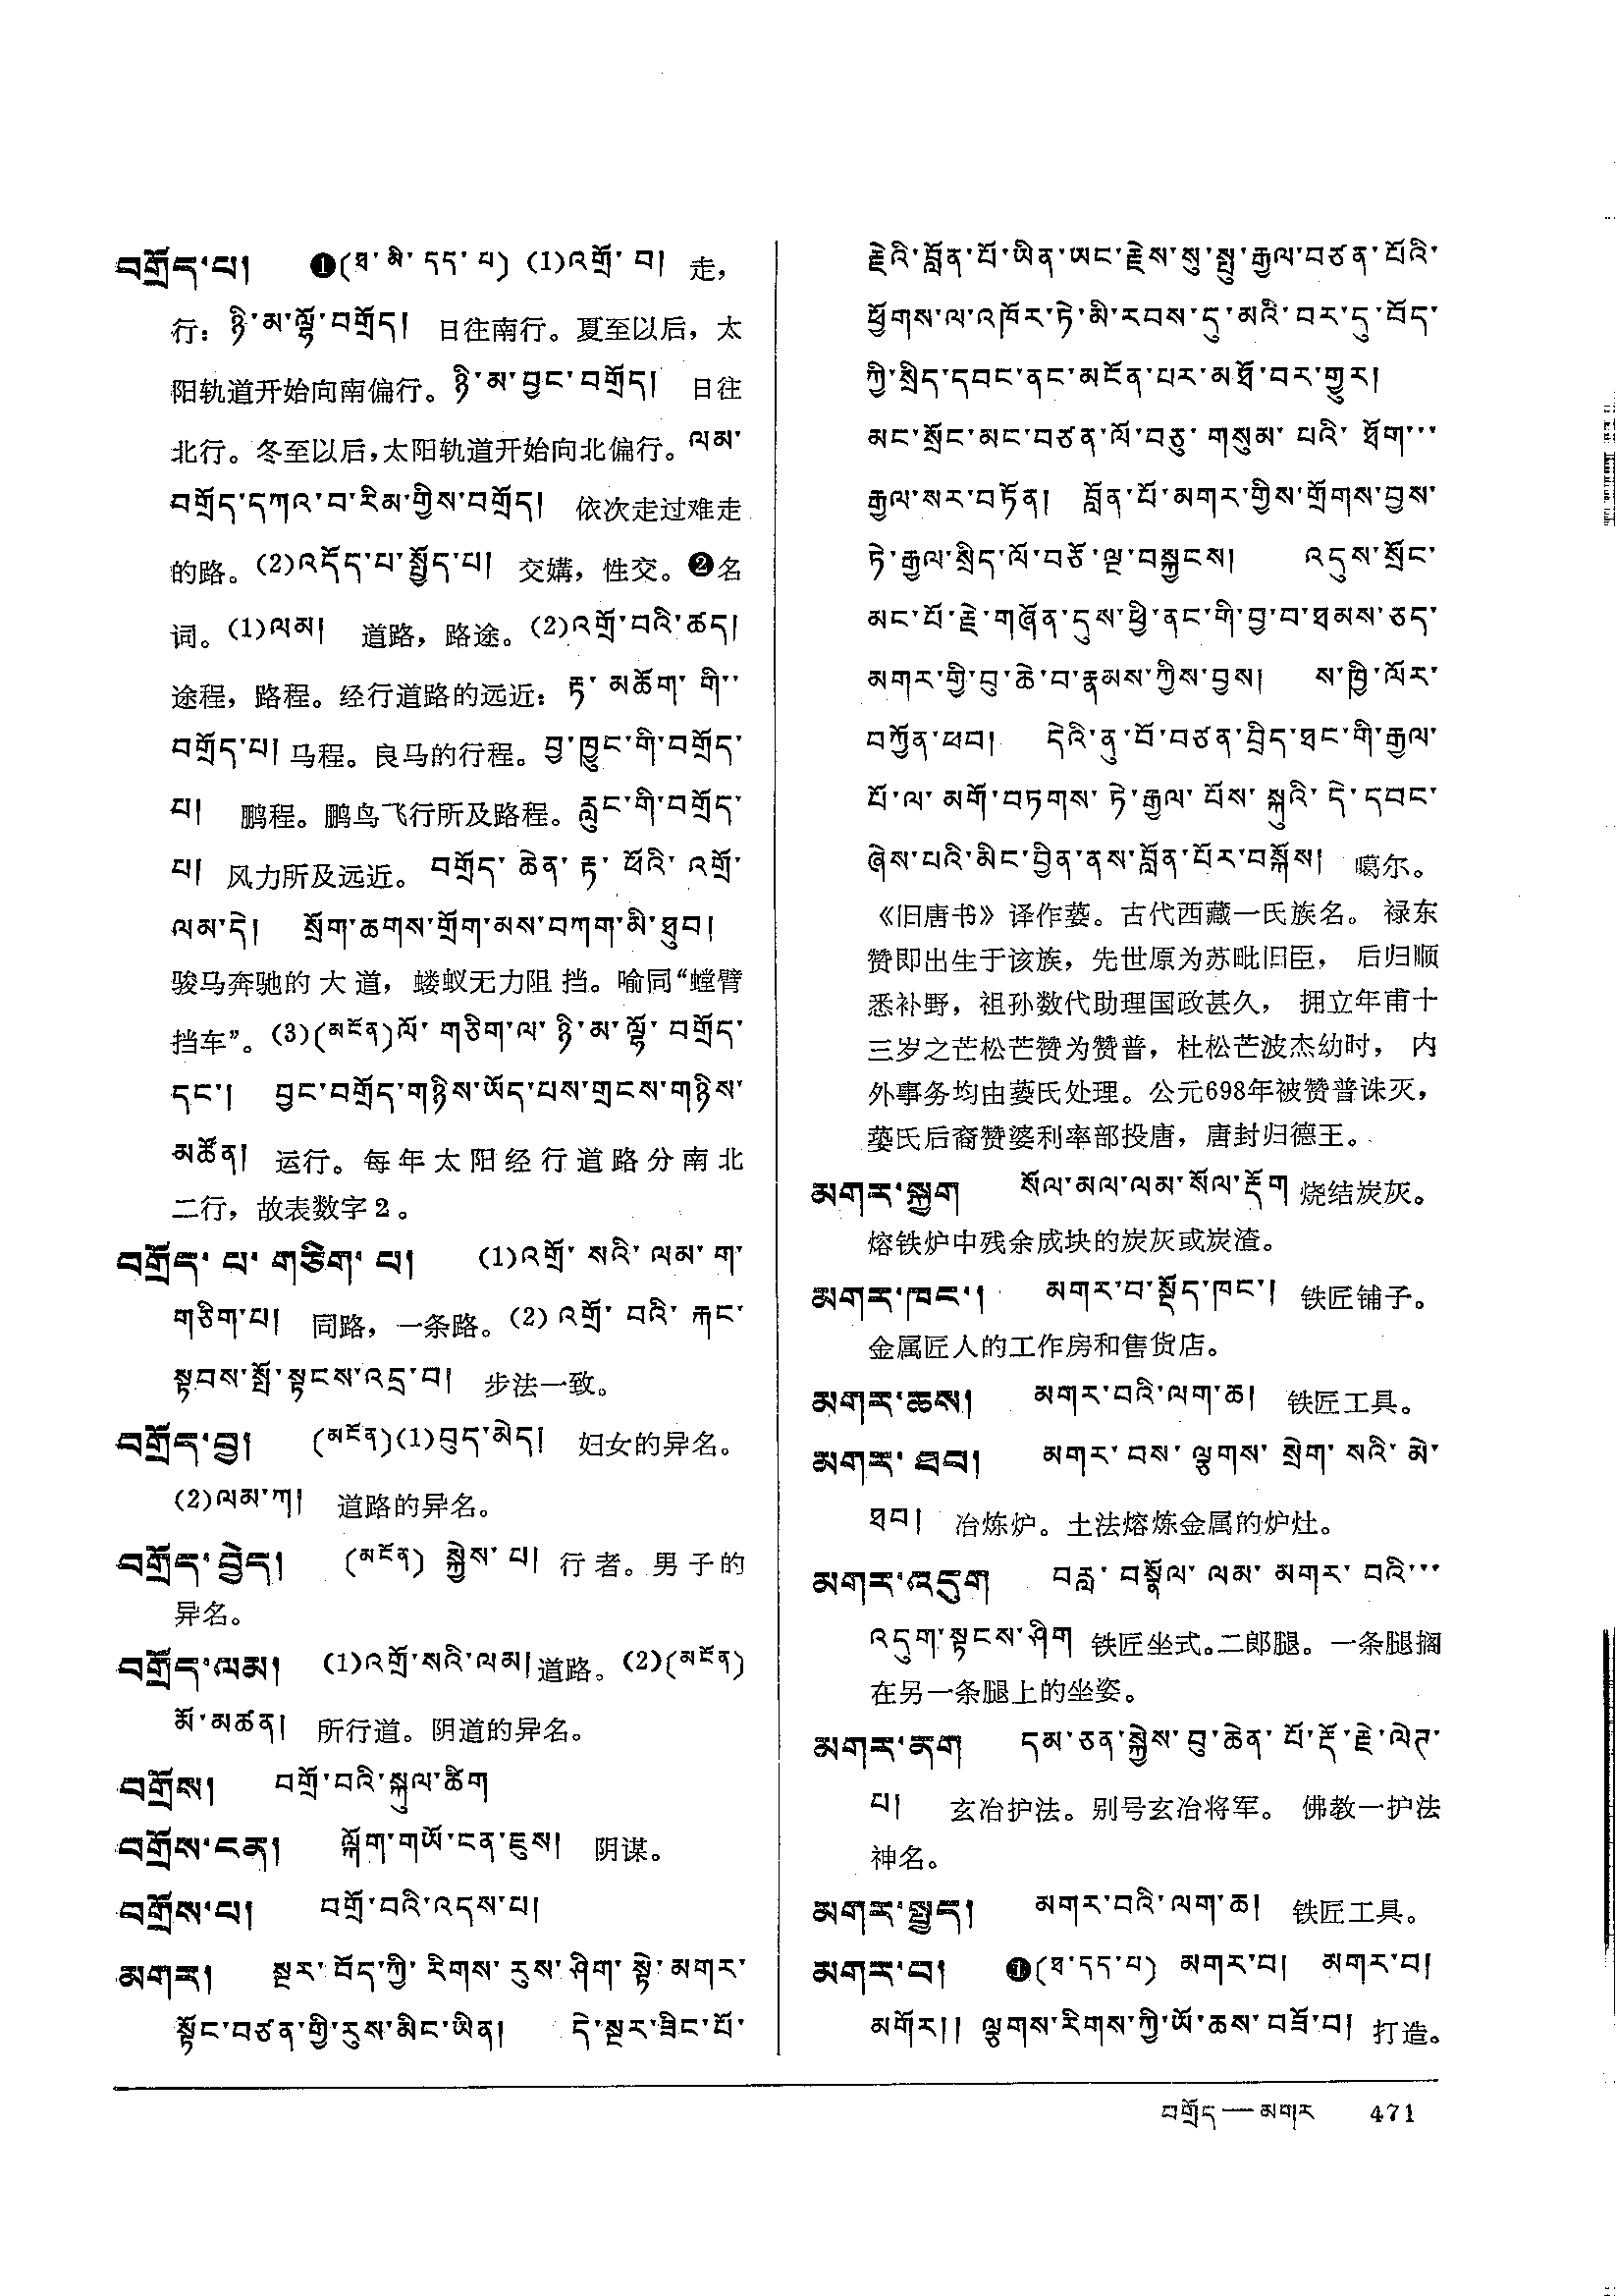 བགྲོད་པ། ❶(ཐ་མི་དད་པ) (1)འགྲོ་བ། 走，
行：ཉི་མ་ལྷོ་བགྲོད། 日往南行。夏至以后，太
阳轨道开始向南偏行。ཉི་མ་བྱང་བགྲོད། 日往
北行。冬至以后，太阳轨道开始向北偏行。ལམ་
བགྲོད་དཀའ་བ་རིམ་གྱིས་བགྲོད། 依次走过难走
的路。(2)འདོད་པ་སྤྱོད་པ། 交媾，性交。❷名
词。(1)ལམ། 道路，路途。(2)འགྲོ་བའི་ཚད།
途程，路程。经行道路的远近：རྟ་མཆོག་གི་··
བགྲོད་པ། 马程。良马的行程。བྱ་ཁྱུང་གི་བགྲོད་
པ། 鹏程。鹏鸟飞行所及路程。རླུང་གི་བགྲོད་
པ། 风力所及远近。བགྲོད་ཆེན་རྟ་ཕོའི་འགྲོ་
ལམ་དེ། སྲོག་ཆགས་གྲོག་མས་བཀག་མི་ཐུབ།
骏马奔驰的大道，蝼蚁无力阻挡。喻同“螳臂
挡车”。(3)(མངོན)ལོ་གཅིག་ལ་ཉི་མ་ལྷོ་བགྲོད་
དང་། བྱང་བགྲོད་གཉིས་ཡོད་པས་གྲངས་གཉིས་
མཚོན། 运行。每年太阳经行道路分南北
二行，故表数字2。
བགྲོད་པ་གཅིག་པ། (1)འགྲོ་སའི་ལམ་ག་
གཅིག་པ། 同路，一条路。(2)འགྲོ་བའི་རྐང་
སྟབས་སྤྲོ་སྟངས་འདྲ་བ། 步法一致。
བགྲོད་བྱ། (མངོན)(1)བུད་མེད། 妇女的异名。
(2)ལམ་ཀ། 道路的异名。
བགྲོད་བྱེད། (མངོན) སྐྱེས་པ། 行者。男子的
异名。
བགྲོད་ལམ། (1)འགྲོ་སའི་ལམ། 道路。(2)(མངོན)
མོ་མཚན། 所行道。阴道的异名。
བགྲོས། བགྲོ་བའི་སྐུལ་ཚིག
བགྲོས་ངན། ལྐོག་གཡོ་ངན་ཇུས། 阴谋。
བགྲོས་པ། བགྲོ་བའི་འདས་པ།
མགར། སྔར་བོད་ཀྱི་རིགས་རུས་ཤིག་སྟེ་མགར་
སྟོང་བཙན་གྱི་རུས་མིང་ཡིན། དེ་སྔར་ཟིང་པོ་
རྗེའི་བློན་པོ་ཡིན་ཡང་རྗེས་སུ་སྤུ་རྒྱལ་བཙན་པོའི་
ཕྱོགས་ལ་འཁོར་ཏེ་མི་རབས་དུ་མའི་བར་དུ་བོད་
ཀྱི་སྲིད་དབང་ནང་མངོན་པར་མཐོ་བར་གྱུར།
མང་སྲོང་མང་བཙན་ལོ་བཅུ་གསུམ་པའི་ཐོག་···
རྒྱལ་སར་བཏོན། བློན་པོ་མགར་གྱིས་གྲོགས་བྱས་
ཏེ་རྒྱལ་སྲིད་ལོ་བཅོ་ལྔ་བསྐྱངས། འདུས་སྲོང་
མང་པོ་རྗེ་གཞོན་དུས་ཕྱི་ནང་གི་བྱ་བ་ཐམས་ཅད་
མགར་གྱི་བུ་ཆེ་བ་རྣམས་ཀྱིས་བྱས། ས་ཁྱི་ལོར་
བཀྱོན་ཕབ། དེའི་ནུ་བོ་བཙན་བྲིད་ཐང་གི་རྒྱལ་
པོ་ལ་མགོ་བཏགས་ཏེ་རྒྱལ་པོས་སྐུའི་དེ་དབང་
ཞེས་པའི་མིང་བྱིན་ནས་བློན་པོར་བསྐོས། 噶尔。
《旧唐书》译作薆。古代西藏一氏族名。禄东
赞即出生于该族，先世原为苏毗旧臣，后归顺
悉补野，祖孙数代助理国政甚久，拥立年甫十
三岁之芒松芒赞为赞普，杜松芒波杰幼时，内
外事务均由薆氏处理。公元698年被赞普诛灭，
薆氏后裔赞婆利率部投唐，唐封归德王。
མགར་སྐྱག སོལ་མལ་ལམ་སོལ་རྡོག 烧结炭灰。
熔铁炉中残余成块的炭灰或炭渣。
མགར་ཁང་། མགར་བ་སྡོད་ཁང་། 铁匠铺子。
金属匠人的工作房和售货店。
མགར་ཆས། མགར་བའི་ལག་ཆ། 铁匠工具。
མགར་ཐབ། མགར་བས་ལྕགས་སྲེག་སའི་མེ་
ཐབ། 冶炼炉。土法熔炼金属的炉灶。
མགར་འདུག བརླ་བསྣོལ་ལམ་མགར་བའི་···
འདུག་སྟངས་ཤིག 铁匠坐式。二郎腿。一条腿搁
在另一条腿上的坐姿。
མགར་ནག དམ་ཅན་སྐྱེས་བུ་ཆེན་པོ་རྡོ་རྗེ་ལེཊ་
པ། 玄冶护法。别号玄冶将军。佛教一护法
神名。
མགར་སྤྱད། མགར་བའི་ལག་ཆ། 铁匠工具。
མགར་བ། ❶(ཐ་དད་པ) མགར་བ། མགར་བ།
མགོར།། ལྕགས་རིགས་ཀྱི་ཡོ་ཆས་བཟོ་བ། 打造。
བགྲོད—མགར 471